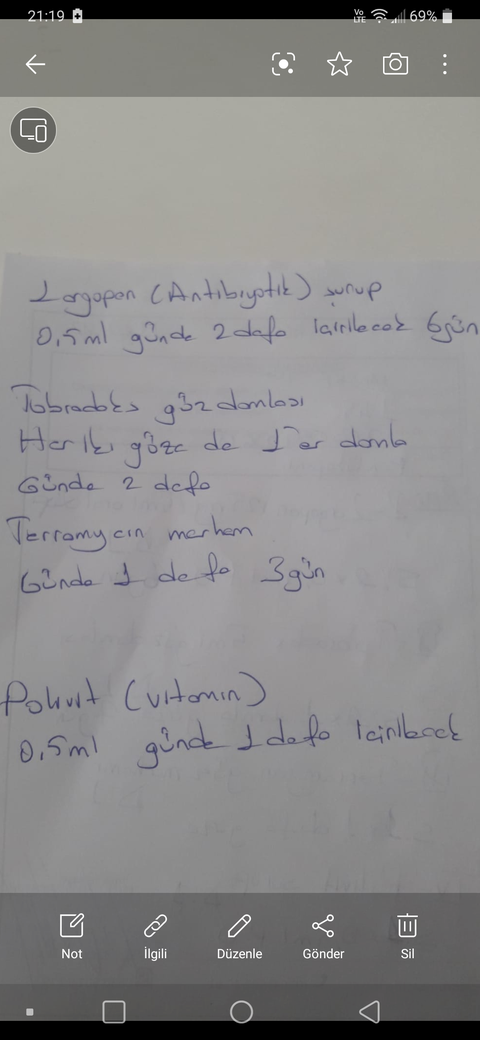 21:19
Vo LTE
69%
Largopen (Antibiyotik) şurup
0,5ml günde 2 defa içirilecek 6gün
Tobradeks göz damlası
Her iki göze de 1'er damla
Günde 2 defa
Terramycin merhem
Günde 1 defa 3gün
Polivit (vitamin)
0,5ml günde 1 defa içirilecek
Not
İlgili
Düzenle
Gönder
Sil